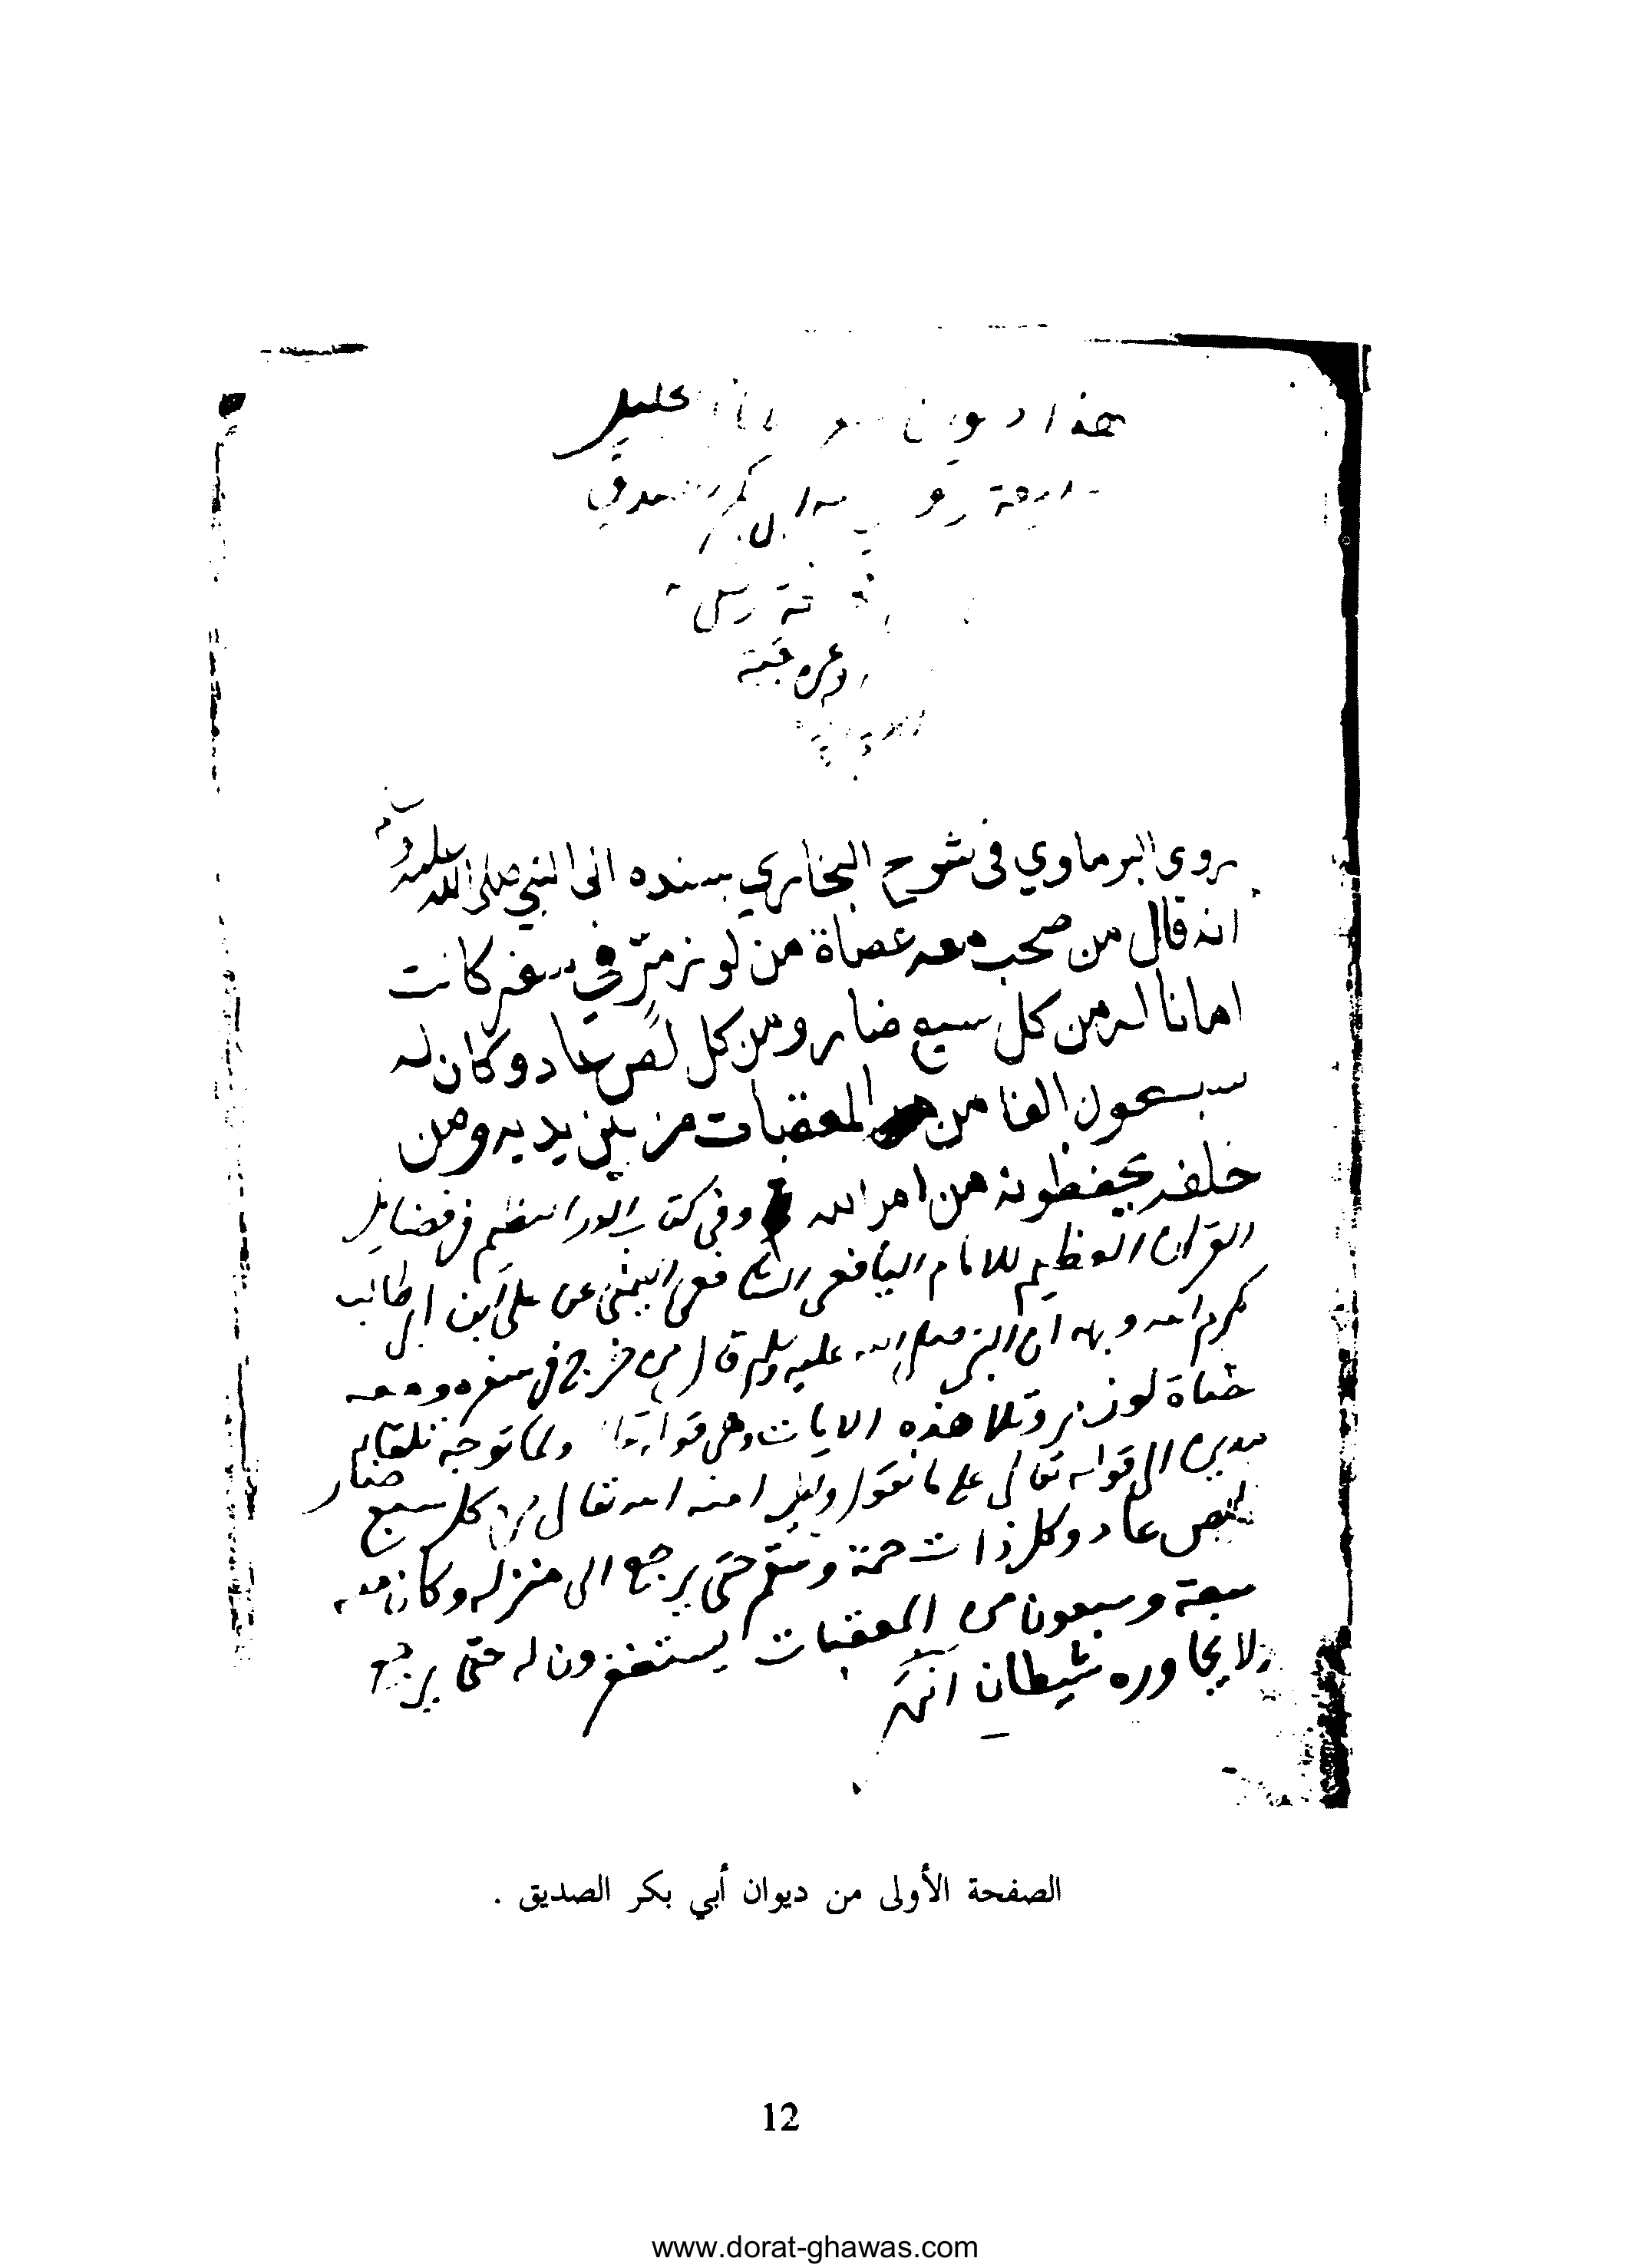 هذا ديوان
ابى بكر
روى البرماوي فى شرح البخاري بسنده الى النبي صلى الله عليه وسلم
انه قال من صحب معه عصاة من لوز مرّ في سفر كانت
امانا له من كل سبع ضار ومن كل لص عاد وكان له
سبعون الفا من المعقبات من بين يديه ومن
خلفه يحفظونه من امر الله وفى كتاب الدر النظيم فى فضايل
القران العظيم للامام اليافعى الشافعى اليمنى عن على ابن ابى طالب
كرم الله وجهه ان النبى صلى الله عليه وسلم قال من خرج فى سفره ومعه
عصاة لوز مر وتلا هذه الايات وهى قوله تعالى ولما توجه تلقاء
مدين الى قوله تعالى على ما نقول وكيل امنه الله تعالى من كل سبع ضار
ولص عاد وكل ذات حمة وسم حتى يرجع الى منزله وكان معه
سبعة وسبعون من المعقبات يستغفرون له حتى يرجع
ولا يجاوره شيطان انتهى
الصفحة الأولى من ديوان أبي بكر الصديق .
12
www.dorat-ghawas.com